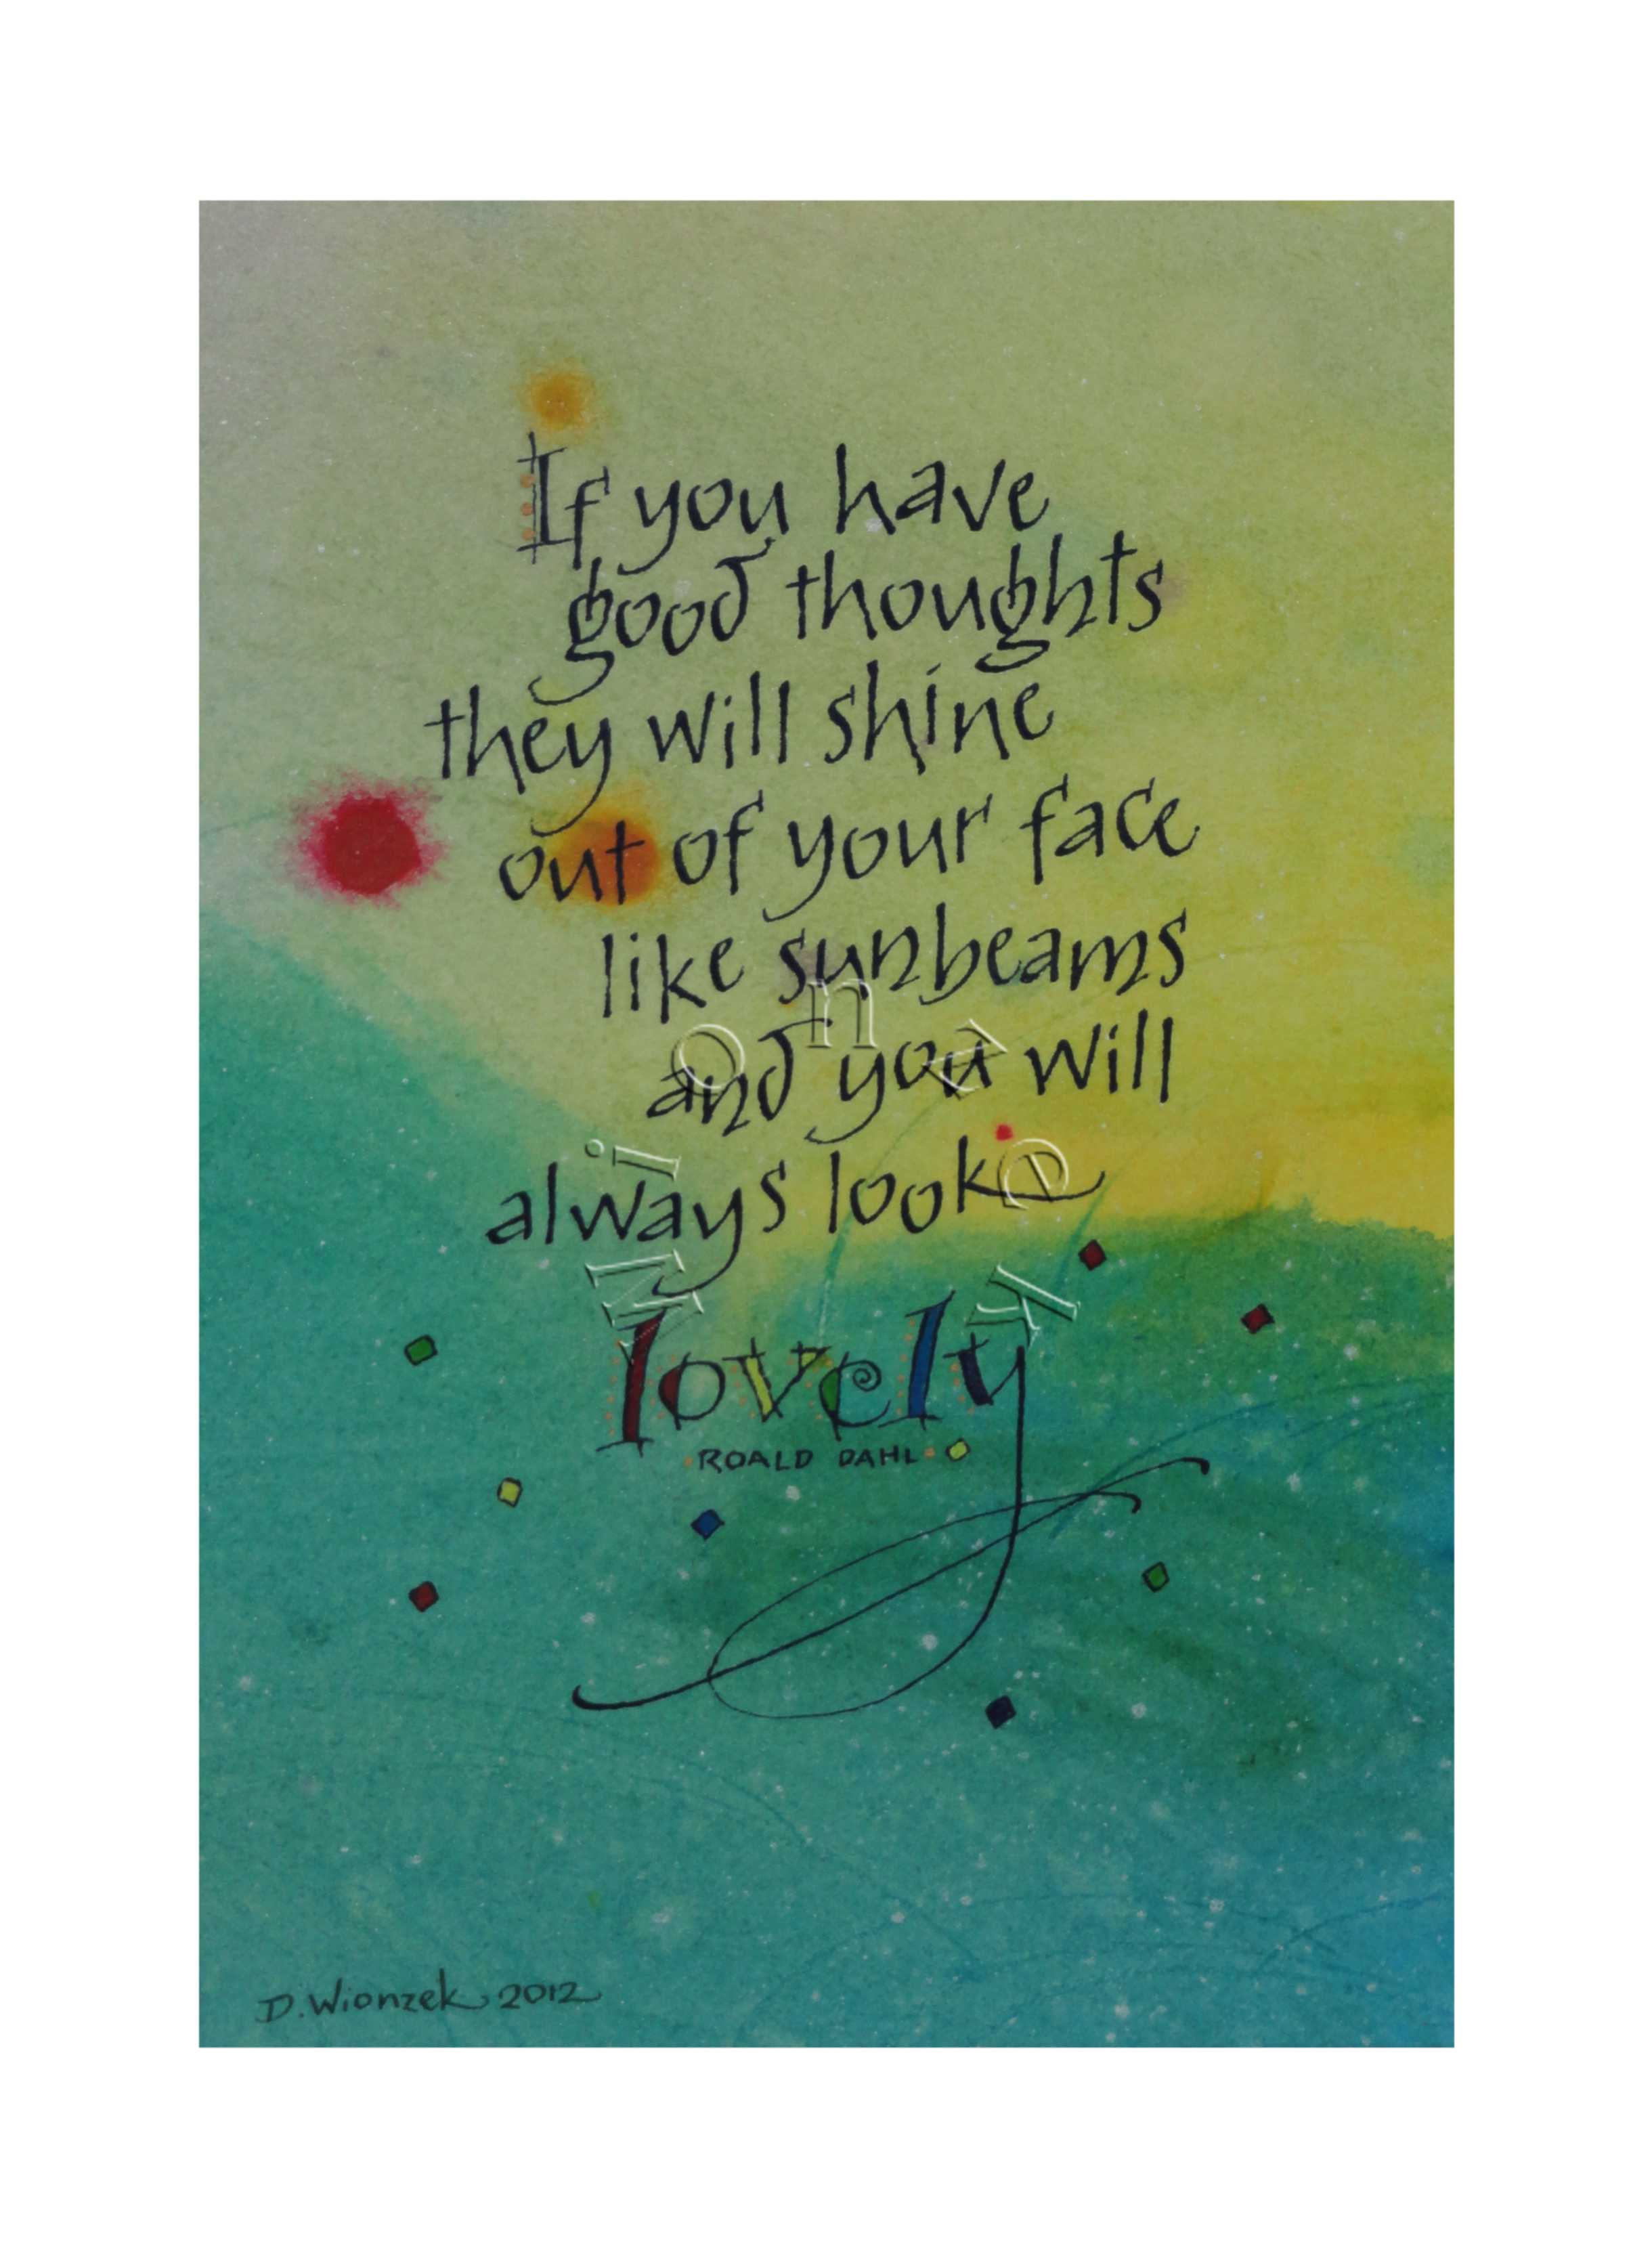 If you have
good thoughts
they will shine
out of your face
like sunbeams
and you will
always look
lovely
ROALD DAHL
D. Wionzek 2012